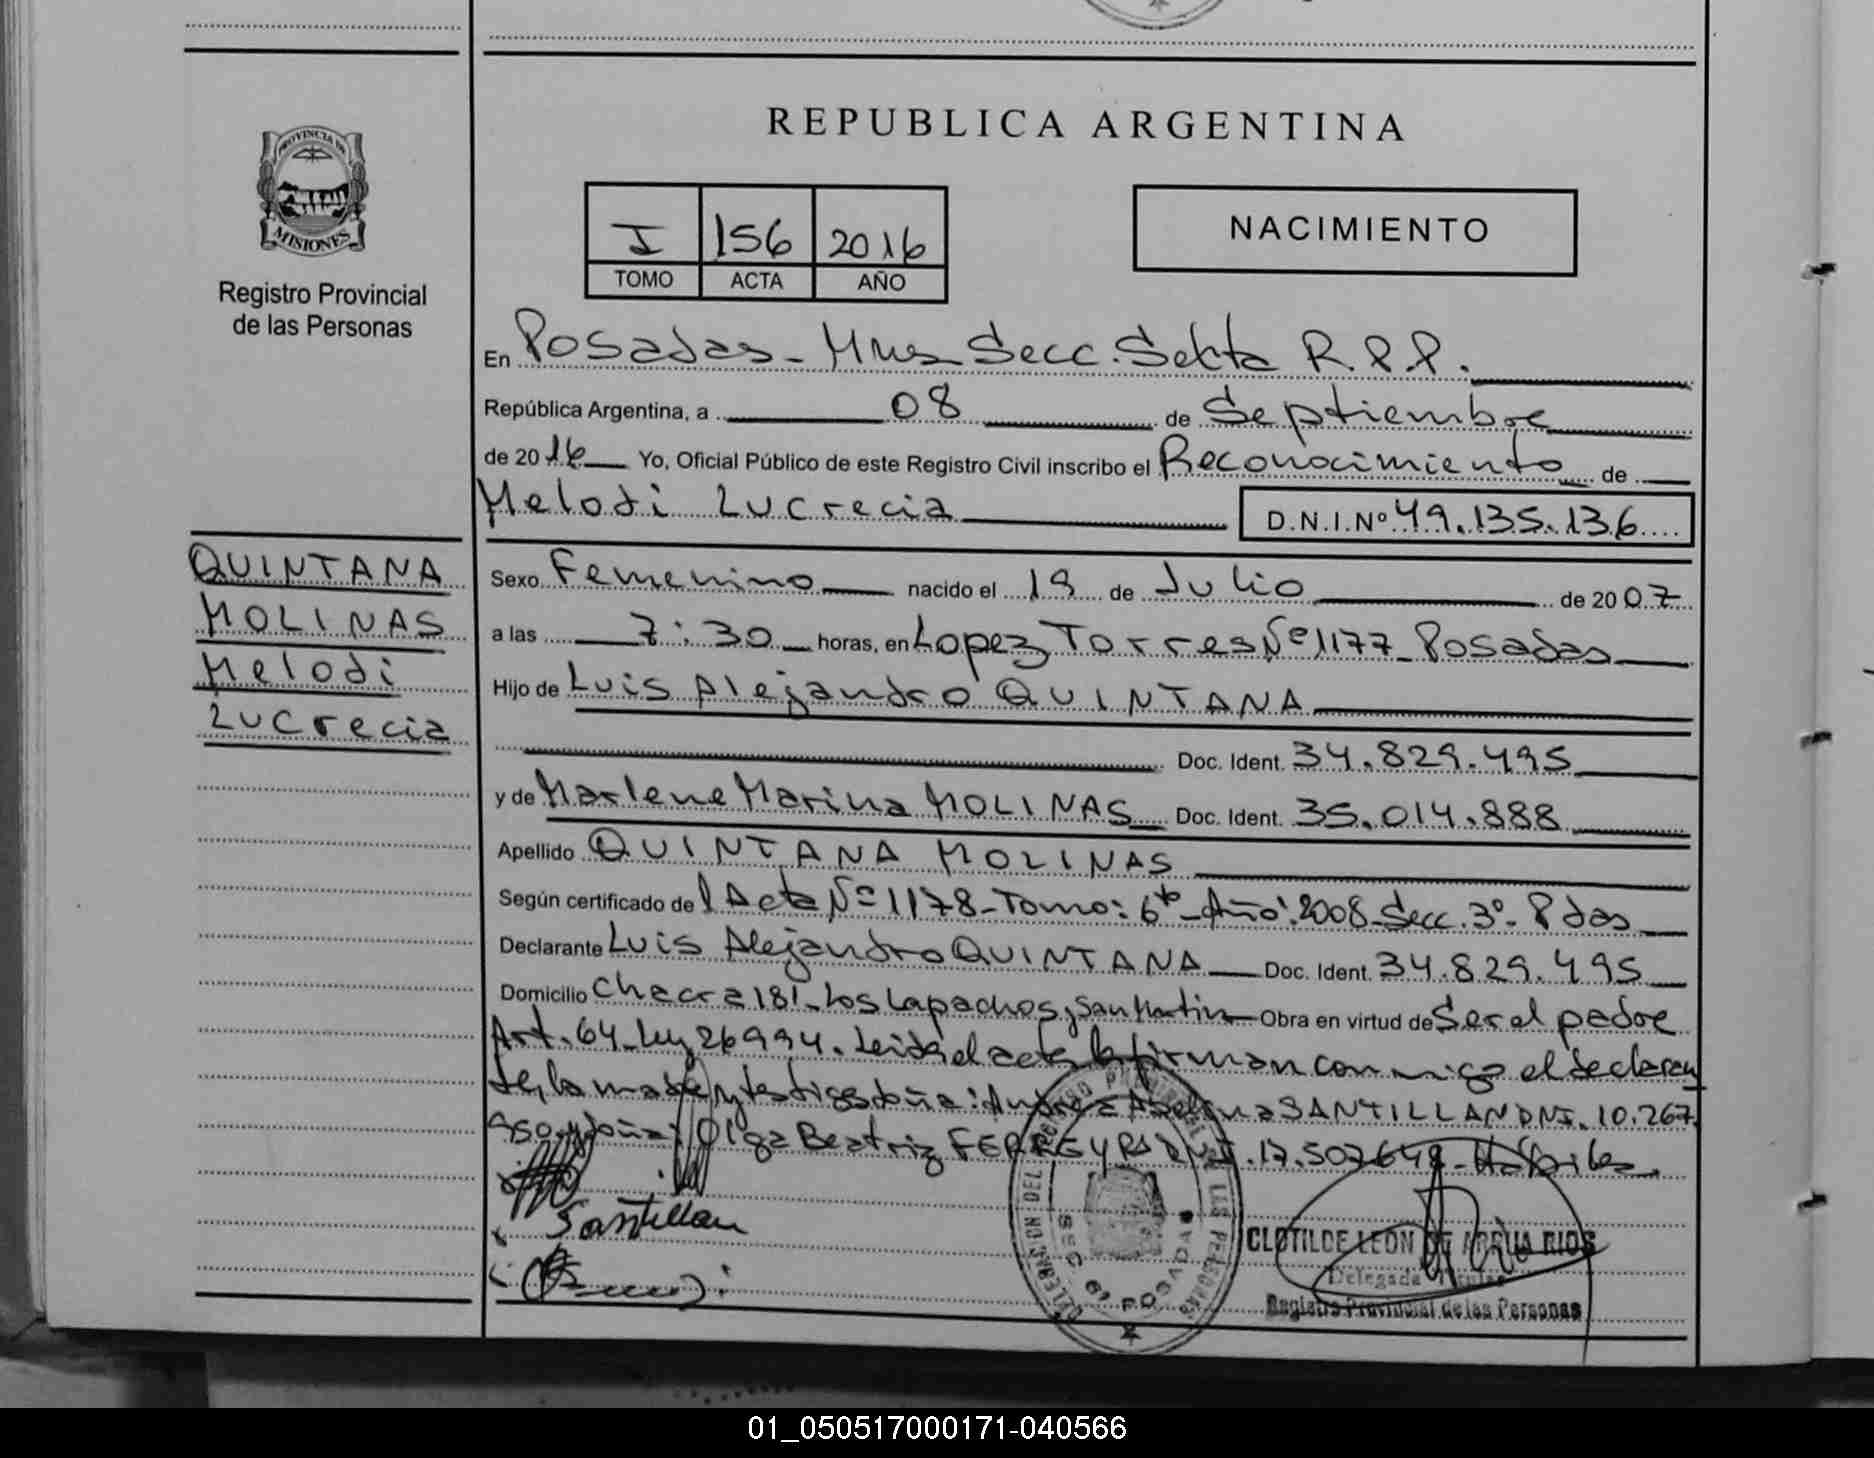 REPUBLICA ARGENTINA
PROVINCIA DE
MISIONES
Registro Provincial
de las Personas
I 156 2016
TOMO ACTA AÑO
NACIMIENTO
En Posadas - Mnes Secc. Sexta R.P.P.
República Argentina, a 08 de Septiembre
de 2016 Yo, Oficial Público de este Registro Civil inscribo el Reconocimiento de
Melodi Lucrecia D.N.I.Nº 49.135.136
QUINTANA
MOLINAS
Melodi
Lucrecia
Sexo Femenino nacido el 19 de Julio de 2007
a las 7:30 horas, en Lopez Torres Nº 1177 - Posadas
Hijo de Luis Alejandro QUINTANA
Doc. Ident. 34.829.495
y de Marlene Marina MOLINAS Doc. Ident. 35.014.888
Apellido QUINTANA MOLINAS
Según certificado del Acta Nº 1178 - Tomo: 6to - Año: 2008 - Secc. 3º - Pdas
Declarante Luis Alejandro QUINTANA Doc. Ident. 34.829.495
Domicilio Chacra 181 - Los Lapachos y San Martin Obra en virtud de Ser el padre
Art. 64 - Ley 26994. Leida el acta la firman conmigo el declaran
te, la madre y testigos doña: Andrea SANTILLAN DNI. 10.267.
950 y doña: Olga Beatriz FERREYRA DNI. 17.507.648 - Hábiles
Santillan
DELEGACION DEL REGISTRO PROVINCIAL DE LAS PERSONAS
SECC 6ª POSADAS
CLOTILDE LEON DE ARRUA RIOS
Delegada Titular
Registro Provincial de las Personas
01_050517000171-040566